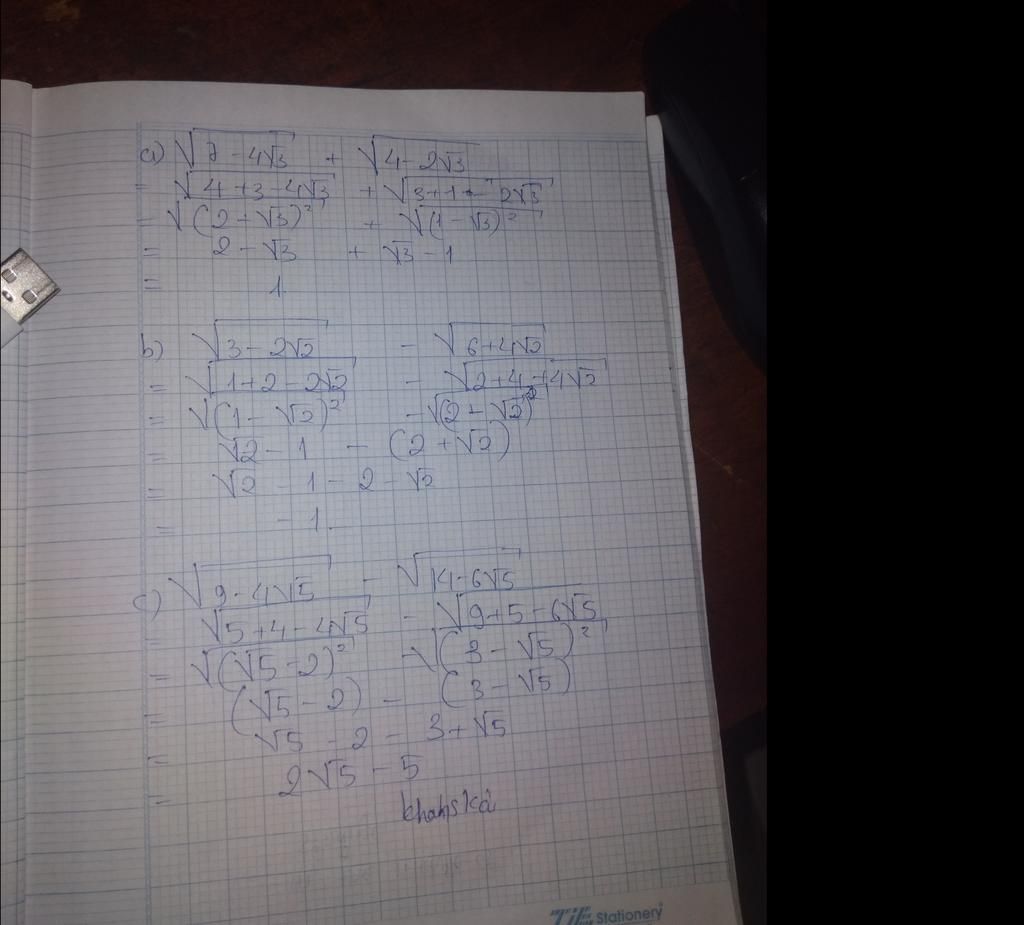 a) √(7 - 4√3) + √(4 - 2√3)
= √(4 + 3 - 4√3) + √(3 + 1 - 2√3)
= √(2 - √3)² + √(1 - √3)²
= 2 - √3 + √3 - 1
= 1
b) √(3 - 2√2) - √(6 + 4√2)
= √(1 + 2 - 2√2) - √(2 + 4 + 4√2)
= √(1 - √2)² - √(2 + √2)²
= √2 - 1 - (2 + √2)
= √2 - 1 - 2 - √2
= - 1
c) √(9 - 4√5) - √(14 - 6√5)
= √(5 + 4 - 4√5) - √(9 + 5 - 6√5)
= √(√5 - 2)² - √(3 - √5)²
= (√5 - 2) - (3 - √5)
= √5 - 2 - 3 + √5
= 2√5 - 5
TiE Stationery